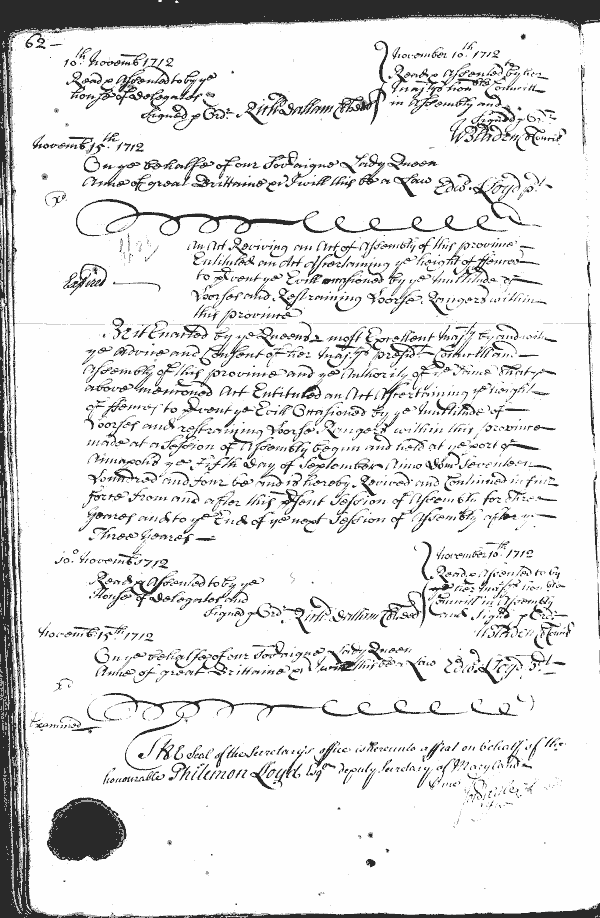 62
10th. Novemb 1712
Read & Assented to by ye
house of delegates
Signed p Ordr. Richd Dallam Cl
November 10th. 1712
Read & Assented by her
Majtys honble Councill
in Assembly and
Signed p Ordr
W Bladen Cl Councl
Novemb 15th. 1712
On ye behalfe of our Soveraigne Lady Queen
Anne of great Brittaine &c I will this be a Law Edwd. Lloyd Pt
Expired
An Act Reviving an Act of Assembly of this province
Entituled an Act Ascertaining ye height of ffences
to prvent ye Evill ocasioned by ye multitude of
Horses and Restraining Horse Rangers within
this province
Be it Enacted by ye Queens most Excellent Majty by and with
ye Advice and Consent of her Majtys Councill and
Assembly of this province and ye authority of ye same that ye
above mentioned Act Entituled an Act Ascertaining ye height
of ffences to prvent ye Evill Ocasioned by ye multitude of
Horses and restraining Horse Rangers within this province
made at a Session of Assembly begun and held at ye port of
Annapolis ye Fifth Day of September Anno Dom Seventeen
Hundred and four be and is hereby Revived and Continued in full
force From and after this prsent Session of Assembly for Three
Yeares and to ye End of ye next Session of Assembly after ye
Three Yeares
10o. Novemb 1712
Read & Assented to by ye
House of delegates and
Signed p Ordr. Richd Dallam Cl
November 10th. 1712
Read & Assented to by
her Majtys honble
Councill in Assembly
and Signd p Ordr
W Bladen Cl Councl
Novemb 15th 1712
On ye behalfe of our Soveraigne Lady Queen
Anne of great Brittaine &c I will this be a Law Edwd Lloyd Pt
Examined
The Seal of the Secretary's office is Hereunto affixt on behalf of the
honourable Philemon Lloyd Esqr deputy Secretary of Maryland